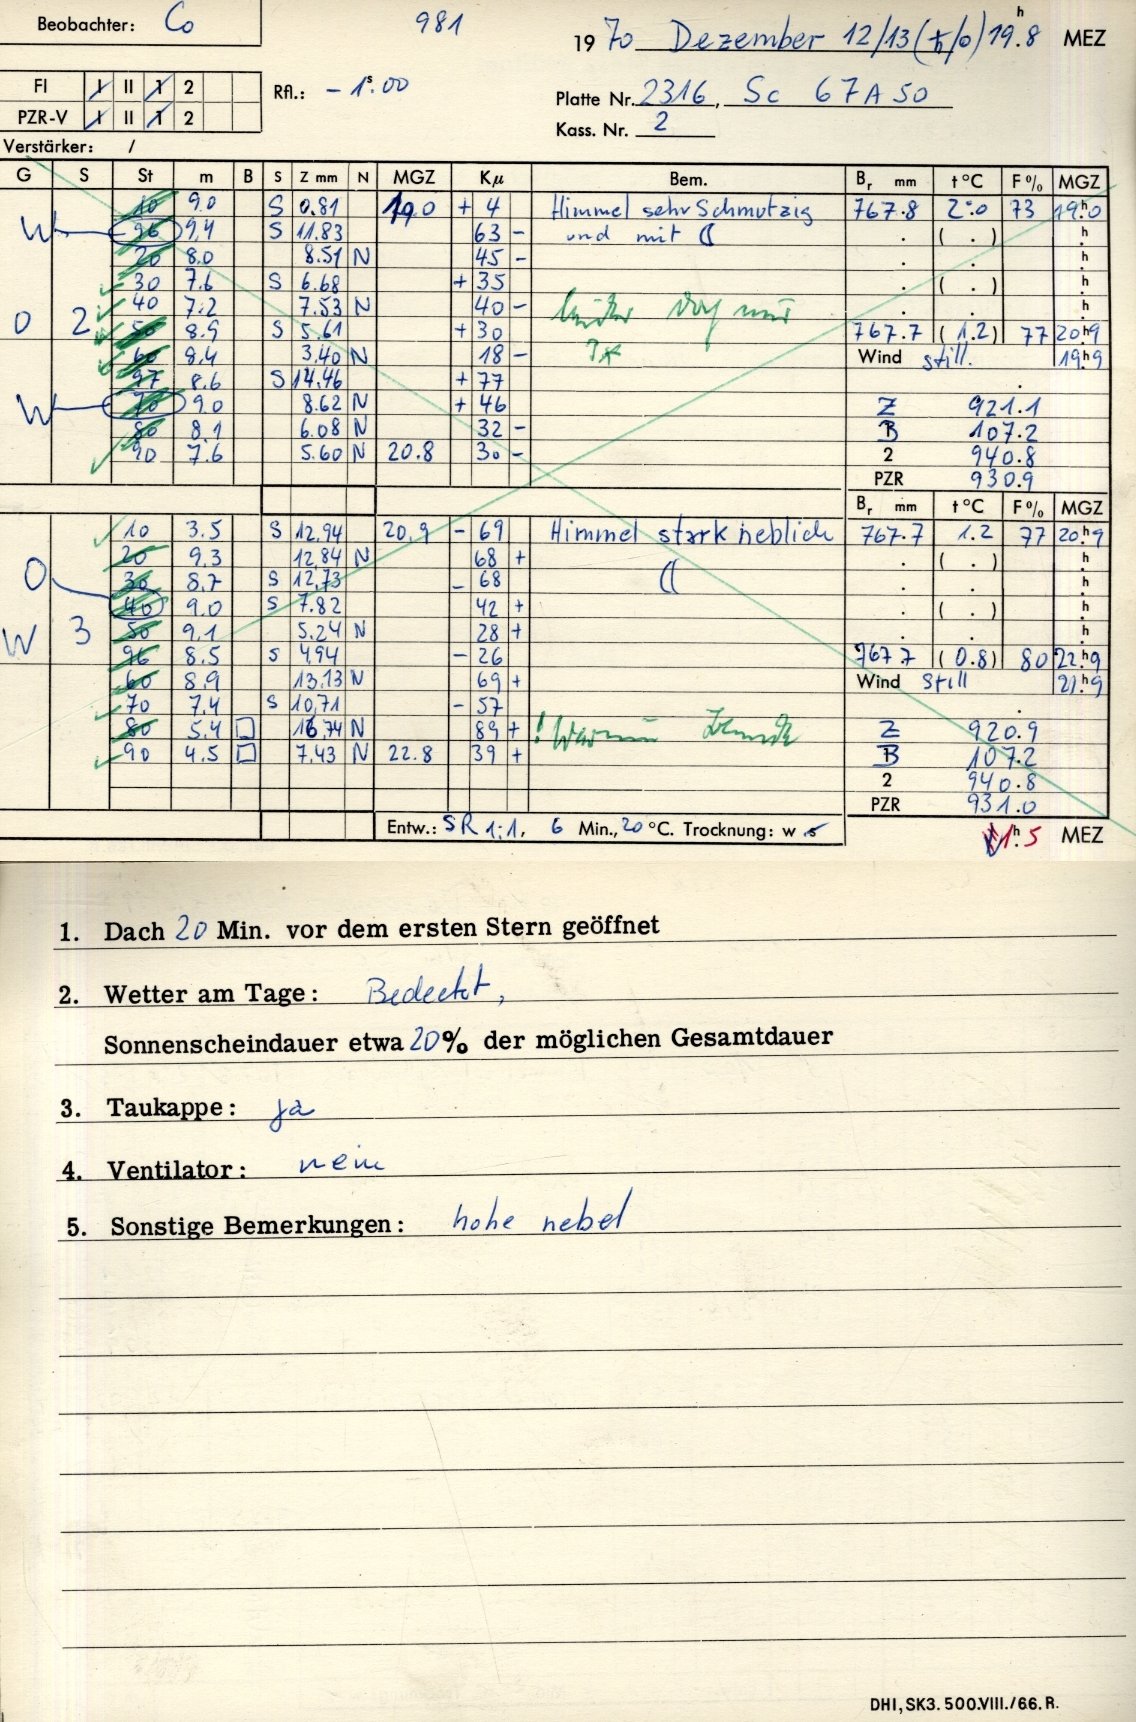 Beobachter: Co
981
1970 Dezember 12/13 (♄/☉) 19.h8 MEZ
FI I II 1 2
PZR-V I II 1 2
Rfl.: - 1s.00
Platte Nr. 2316, Sc 67A50
Kass. Nr. 2
Verstärker: /
G S St m B S Z mm N MGZ Kμ Bem. Br mm t°C F% MGZ
10 9.0 S 0.81 19.0 + 4 Himmel sehr Schmutzig 767.8 2.0 73 19.h0
W 96 9,4 S 11.83 63 - und mit ☾ . ( . ) h
20 8.0 8.51 N 45 - . . h
30 7.6 S 6.68 + 35 . ( . ) h
40 7.2 7.53 N 40 - . . h
O 2 50 8.9 S 5.61 + 30 767.7 (1.2) 77 20.h9
60 8.4 3.40 N 18 - 7* Wind still. 19.h9
97 8.6 S 14.46 + 77
W 70 9.0 8.62 N + 46 Z 921.1
80 8.1 6.08 N 32 - B 107.2
90 7.6 5.60 N 20.8 30 - 2 940.8
PZR 930.9
Br mm t°C F% MGZ
10 3.5 S 12,94 20,9 - 69 Himmel stark neblich 767.7 1.2 77 20.h9
20 9,3 12,84 N 68 + ☾ . ( . ) h
O 30 8,7 S 12,73 - 68 . . h
40 9.0 S 7.82 42 + . ( . ) h
W 3 50 9,1 5.24 N 28 + . . h
96 8.5 S 4,94 - 26 767.7 (0.8) 80 22.h9
60 8.9 13.13 N 69 + Wind Still 21.h9
70 7,4 S 10,71 - 57
80 5.4 □ 16,74 N 89 + ! Warum Z 920.9
90 4.5 □ 7,43 N 22.8 39 + B 107.2
2 940.8
PZR 931.0
Entw.: SR 1:1, 6 Min., 20 °C. Trocknung: w s
1.h5 MEZ
1. Dach 20 Min. vor dem ersten Stern geöffnet
2. Wetter am Tage: Bedeckt,
Sonnenscheindauer etwa 20% der möglichen Gesamtdauer
3. Taukappe: ja
4. Ventilator: nein
5. Sonstige Bemerkungen: hohe nebel
DHI, SK3. 500.VIII./66. R.